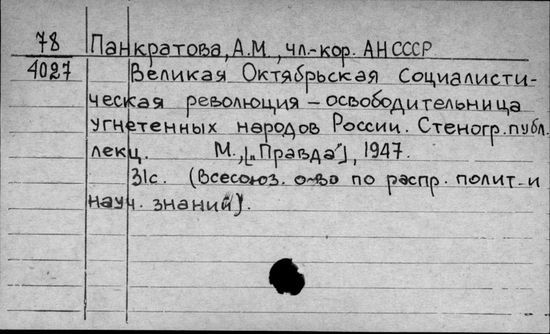 78 Панкратова, А.М., чл.-кор. АН СССР
4027 Великая Октябрьская Социалисти-
ческая революция – освободительница
угнетенных народов России. Стеногр. публ.
лекц. М., [„Правда"], 1947.
31с. (Всесоюз. о-во по распр. полит. и
науч. знаний).